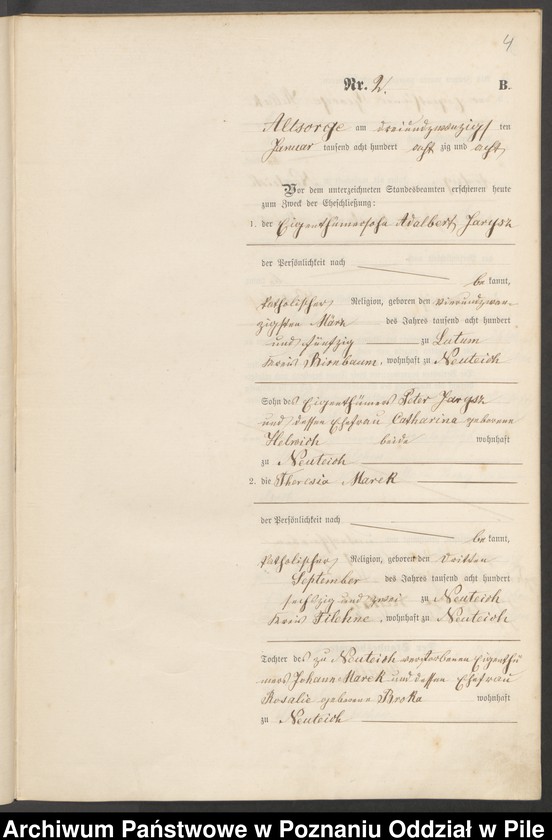 4
Nr. 2. B.
Altsorge am dreiundzwanzigs ten
Januar tausend acht hundert acht zig und acht
Vor dem unterzeichneten Standesbeamten erschienen heute
zum Zweck der Eheschließung:
1. der Eigenthümersohn Adalbert Jarysz
der Persönlichkeit nach
be kannt,
katholischer Religion, geboren den vierundzwan-
zigsten März des Jahres tausend acht hundert
und fünfzig zu Lutum
Kreis Birnbaum, wohnhaft zu Neuteich
Sohn des Eigenthümers Peter Jarysz
und dessen Ehefrau Catharina geborenen
Helwich beide wohnhaft
zu Neuteich
2. die Theresia Marek
der Persönlichkeit nach
be kannt,
katholischer Religion, geboren den dritten
September des Jahres tausend acht hundert
sechszig und zwei zu Neuteich
Kreis Filehne, wohnhaft zu Neuteich
Tochter des zu Neuteich verstorbenen Eigenthü
mers Johann Marek und dessen Ehefrau
Rosalie geborenen Broka wohnhaft
zu Neuteich
Archiwum Państwowe w Poznaniu Oddział w Pile